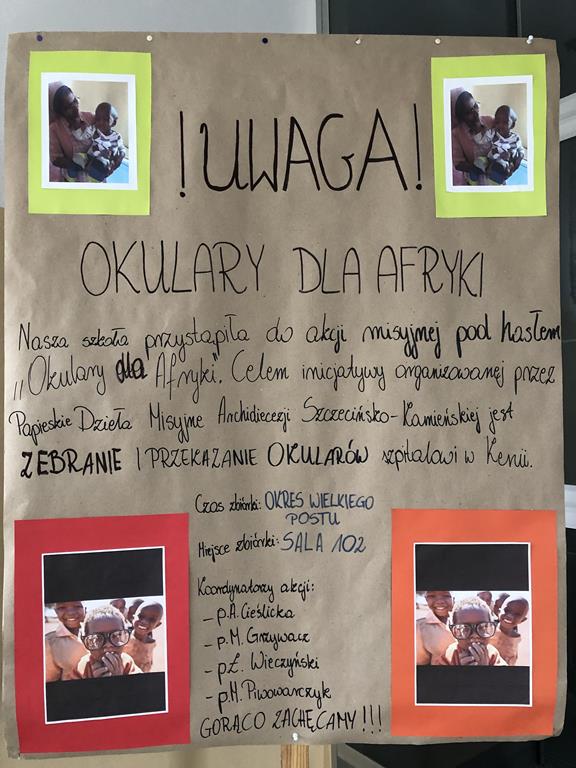 !UWAGA!
OKULARY DLA AFRYKI
Nasza szkoła przystąpiła do akcji misyjnej pod hasłem
„Okulary dla Afryki". Celem inicjatywy organizowanej przez
Papieskie Dzieła Misyjne Archidiecezji Szczecińsko-Kamieńskiej jest
ZEBRANIE I PRZEKAZANIE OKULARÓW szpitalowi w Kenii.
Czas zbiórki: OKRES WIELKIEGO
POSTU
Miejsce zbiórki: SALA 102
Koordynatorzy akcji:
- p.A. Cieślicka
- p.M. Grzywacz
- p.Ł. Wieczyński
- p.M. Piwowarczyk
GORĄCO ZACHĘCAMY!!!